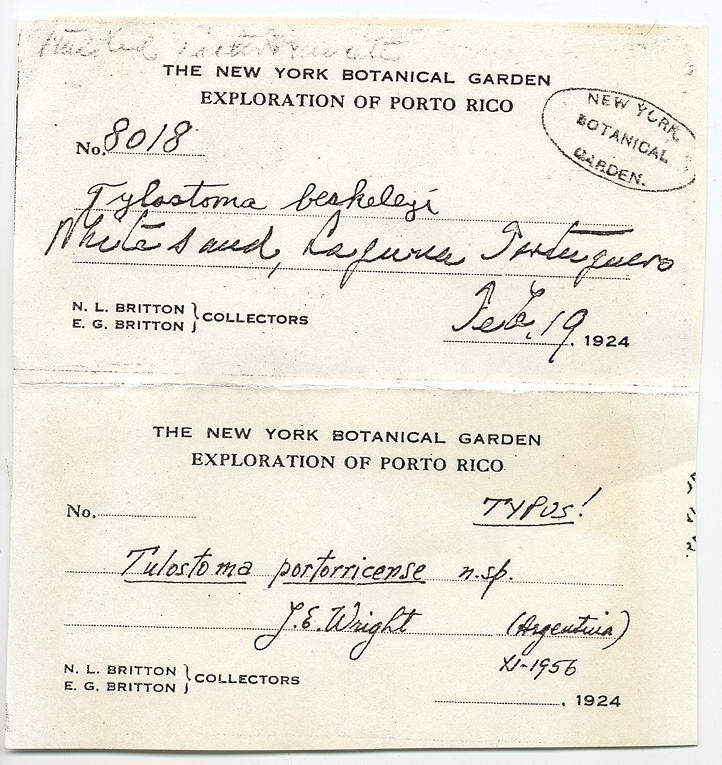 THE NEW YORK BOTANICAL GARDEN
EXPLORATION OF PORTO RICO
NEW YORK
BOTANICAL
GARDEN.
No. 8018
Tylostoma berkeleyi
White sand, Laguna Tortuguero
N. L. BRITTON
E. G. BRITTON } COLLECTORS
Feb. 19, 1924
THE NEW YORK BOTANICAL GARDEN
EXPLORATION OF PORTO RICO
No.
TYPUS!
Tulostoma portorricense n.sp.
J.E. Wright (Argentina)
XI-1956
N. L. BRITTON
E. G. BRITTON } COLLECTORS
, 1924